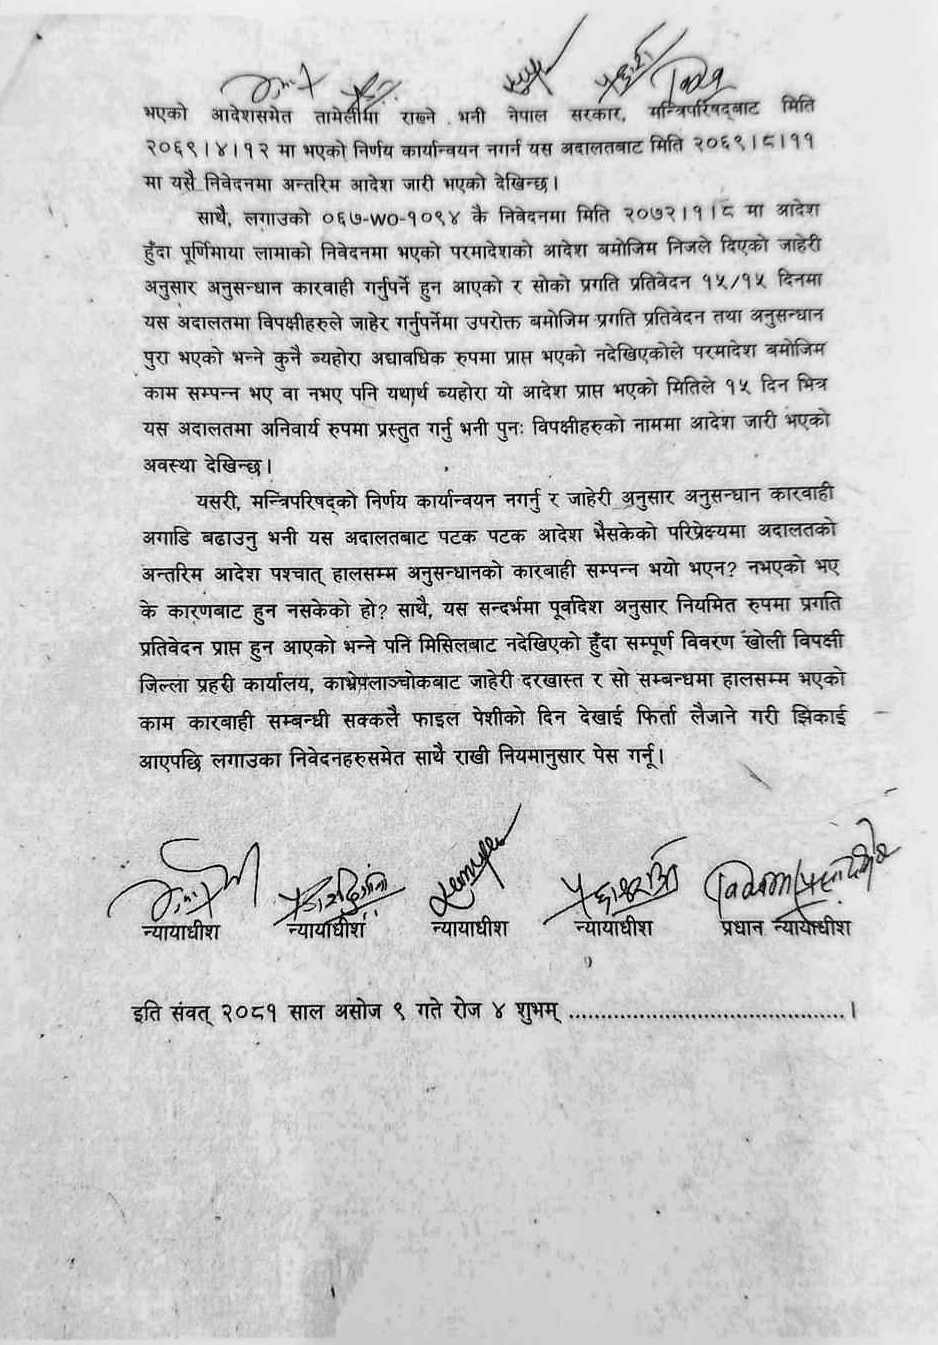 भएको आदेशसमेत तामेलीमा राख्ने भनी नेपाल सरकार, मन्त्रिपरिषद्बाट मिति
२०६९।४।१२ मा भएको निर्णय कार्यान्वयन नगर्न यस अदालतबाट मिति २०६९।८।११
मा यसै निवेदनमा अन्तरिम आदेश जारी भएको देखिन्छ।
साथै, लगाउको ०६७-WO-१०९४ कै निवेदनमा मिति २०७२।१।८ मा आदेश
हुँदा पूर्णिमाया लामाको निवेदनमा भएको परमादेशको आदेश बमोजिम निजले दिएको जाहेरी
अनुसार अनुसन्धान कारवाही गर्नुपर्ने हुन आएको र सोको प्रगति प्रतिवेदन १५/१५ दिनमा
यस अदालतमा विपक्षीहरुले जाहेर गर्नुपर्नेमा उपरोक्त बमोजिम प्रगति प्रतिवेदन तथा अनुसन्धान
पुरा भएको भन्ने कुनै ब्यहोरा अद्यावधिक रुपमा प्राप्त भएको नदेखिएकोले परमादेश बमोजिम
काम सम्पन्न भए वा नभए पनि यथार्थ ब्यहोरा यो आदेश प्राप्त भएको मितिले १५ दिन भित्र
यस अदालतमा अनिवार्य रुपमा प्रस्तुत गर्नु भनी पुनः विपक्षीहरुको नाममा आदेश जारी भएको
अवस्था देखिन्छ।
यसरी, मन्त्रिपरिषद्को निर्णय कार्यान्वयन नगर्नु र जाहेरी अनुसार अनुसन्धान कारवाही
अगाडि बढाउनु भनी यस अदालतबाट पटक पटक आदेश भैसकेको परिप्रेक्ष्यमा अदालतको
अन्तरिम आदेश पश्चात् हालसम्म अनुसन्धानको कारबाही सम्पन्न भयो भएन? नभएको भए
के कारणबाट हुन नसकेको हो? साथै, यस सन्दर्भमा पूर्वादेश अनुसार नियमित रुपमा प्रगति
प्रतिवेदन प्राप्त हुन आएको भन्ने पनि मिसिलबाट नदेखिएको हुँदा सम्पूर्ण विवरण खोली विपक्षी
जिल्ला प्रहरी कार्यालय, काभ्रेपलाञ्चोकबाट जाहेरी दरखास्त र सो सम्बन्धमा हालसम्म भएको
काम कारबाही सम्बन्धी सक्कलै फाइल पेशीको दिन देखाई फिर्ता लैजाने गरी झिकाई
आएपछि लगाउका निवेदनहरुसमेत साथै राखी नियमानुसार पेस गर्नू।
न्यायाधीश न्यायाधीश न्यायाधीश न्यायाधीश प्रधान न्यायाधीश
इति संवत् २०८१ साल असोज ९ गते रोज ४ शुभम् ..........................................।